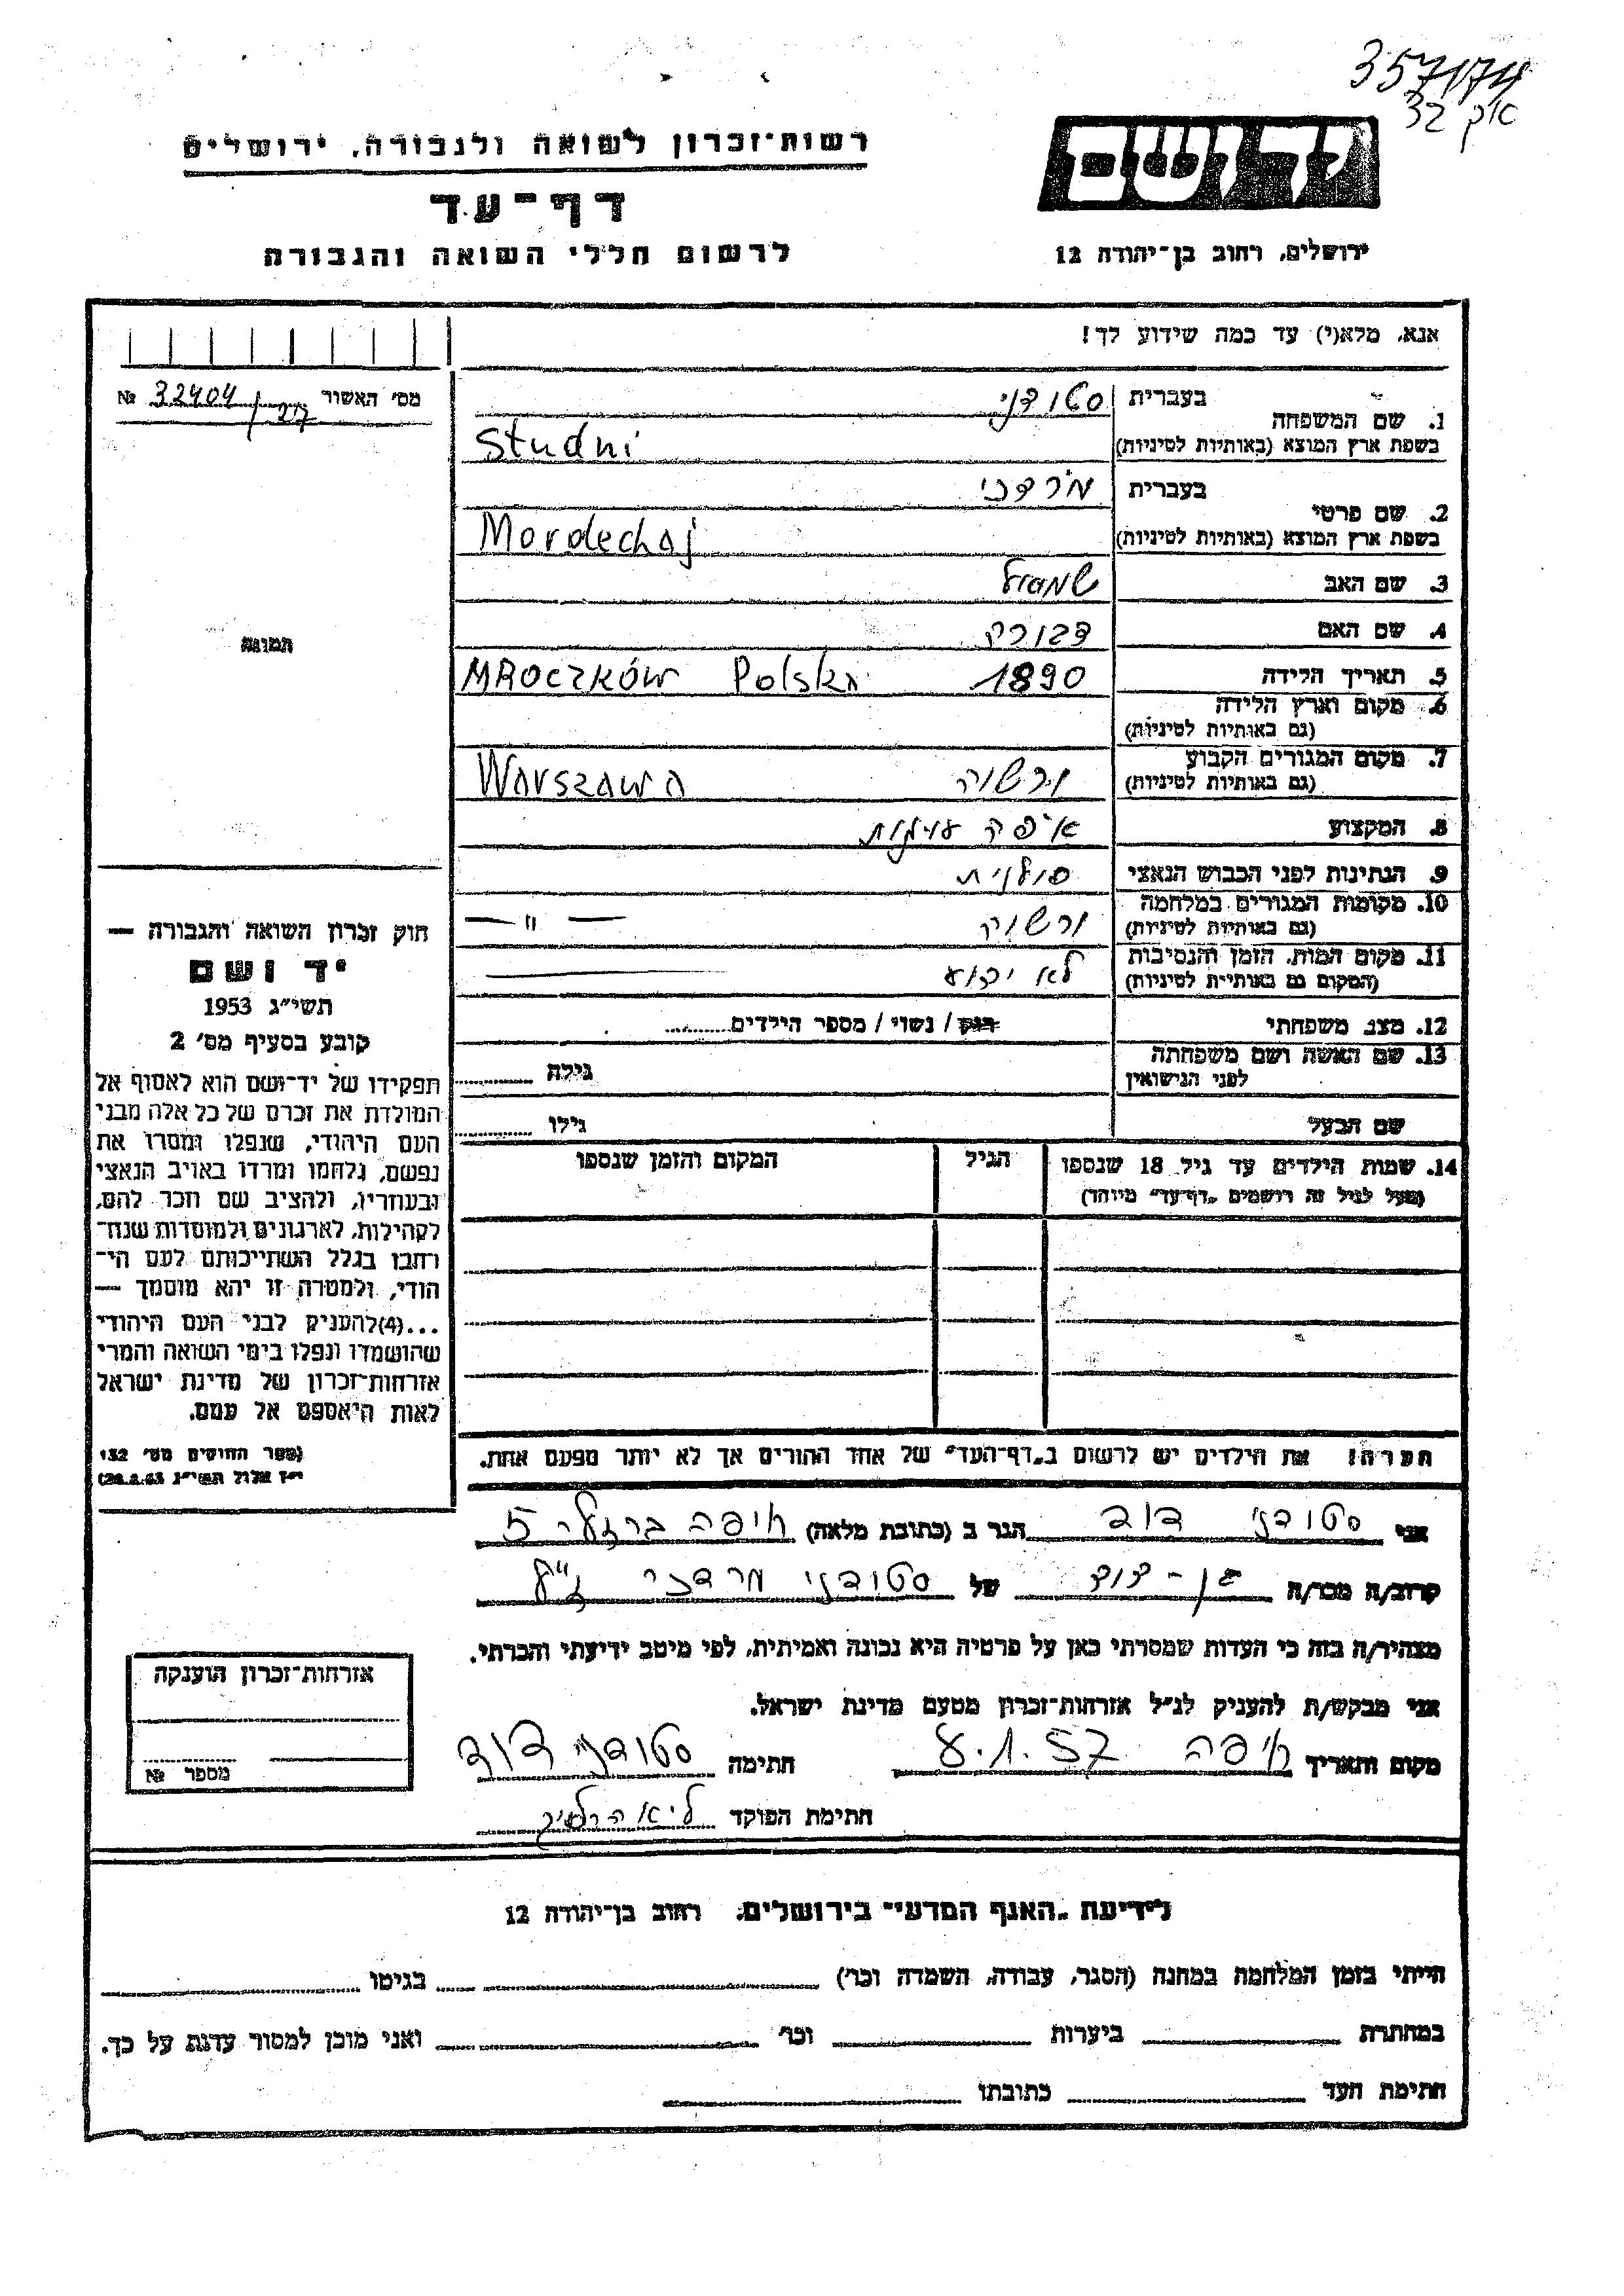 357174
32 אק
יד ושם
רשות־זכרון לשואה ולגבורה, ירושלים
דף־עד
לרשום חללי השואה והגבורה
ירושלים, רחוב בן־יהודה 12
אנא, מלא(י) עד כמה שידוע לך!
מס׳ האשור 27/32404 №
תמונה
חוק זכרון השואה והגבורה —
יד ושם
תשי״ג 1953
קובע בסעיף מס׳ 2
תפקידו של יד־ושם הוא לאסוף אל
המולדת את זכרם של כל אלה מבני
העם היהודי, שנפלו ומסרו את
נפשם, נלחמו ומרדו באויב הנאצי
ובעוזריו, ולהציב שם וזכר להם,
לקהילות, לארגונים ולמוסדות שנח־
רבו בגלל השתייכותם לעם הי־
הודי, ולמטרה זו יהא מוסמך —
...(4)להעניק לבני העם היהודי
שהושמדו ונפלו בימי השואה והמרי
אזרחות־זכרון של מדינת ישראל
לאות היאספם אל עמם.
(ספר החוקים מס׳ 132
י״ז אלול תשי״ג
1. שם המשפחה
בעברית סטודני
בשפת ארץ המוצא (באותיות לטיניות) Studni
2. שם פרטי
בעברית מרדכי
בשפת ארץ המוצא (באותיות לטיניות) Mordechaj
3. שם האב שמואל
4. שם האם דבורה
5. תאריך הלידה 1890 MROCZKÓW Polska
6. מקום וארץ הלידה
(גם באותיות לטיניות)
7. מקום המגורים הקבוע ורשוה Warszawa
(גם באותיות לטיניות)
8. המקצוע אופה עוגות
9. הנתינות לפני הכבוש הנאצי פולנית
10. מקומות המגורים במלחמה ורשוה — " —
(גם באותיות לטיניות)
11. מקום המות, הזמן והנסיבות לא ידוע
(המקום גם באותיות לטיניות)
12. מצב משפחתי רווק / נשוי / מספר הילדים
13. שם האשה ושם משפחתה גילה
לפני הנישואין
שם הבעל גילו
14. שמות הילדים עד גיל 18 שנספו הגיל המקום והזמן שנספו
(מעל לגיל זה רושמים „דף־עד״ מיוחד)
הערה! את הילדים יש לרשום ב„דף־העד״ של אחד ההורים אך לא יותר מפעם אחת.
אני סטודני דוד הגר ב (כתובת מלאה) חיפה 5
קרוב/ה מכר/ה בן-דוד של סטודני מרדכי ז״ל
מצהיר/ה בזה כי העדות שמסרתי כאן על פרטיה היא נכונה ואמיתית, לפי מיטב ידיעתי והכרתי.
אני מבקש/ת להעניק לנ״ל אזרחות־זכרון מטעם מדינת ישראל.
מקום ותאריך חיפה 8.1.57 חתימה סטודני דוד
חתימת הפוקד
אזרחות־זכרון הוענקה
מספר №
לידיעת „האגף המדעי״ בירושלים, רחוב בן־יהודה 12
הייתי בזמן המלחמה במחנה (הסגר, עבודה, השמדה וכו׳) בגיטו
במחתרת ביערות וכו׳ ואני מוכן למסור עדות על כך.
חתימת העד כתובתו